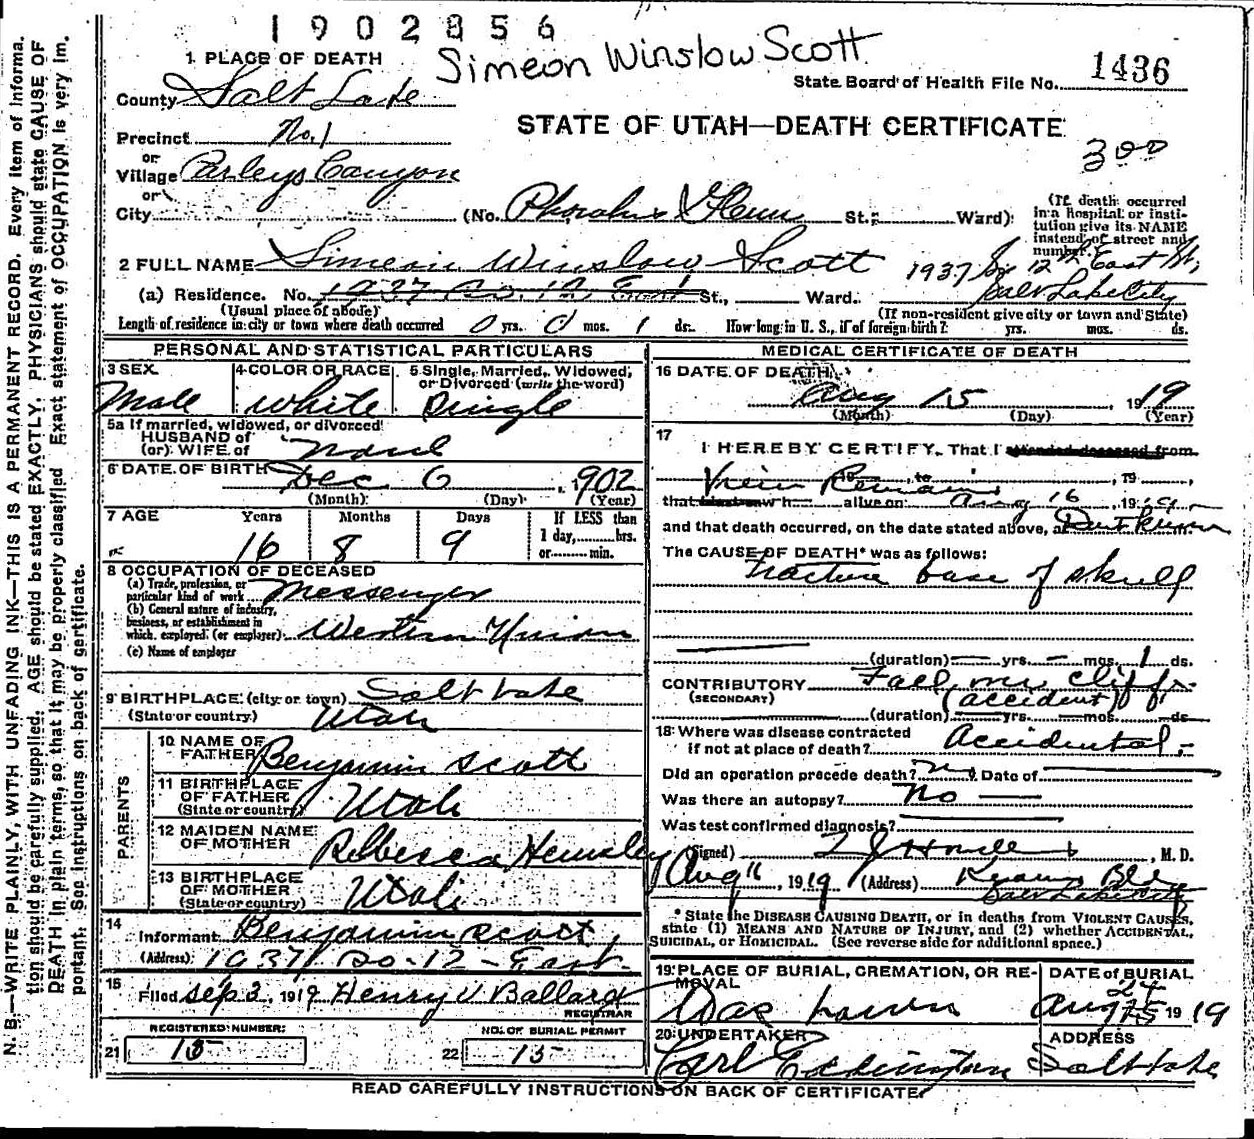 1902856
Simeon Winslow Scott
1436
State Board of Health File No.
1 PLACE OF DEATH
County Salt Lake
STATE OF UTAH—DEATH CERTIFICATE
300
Precinct No. 1
or
Village Parleys Canyon
or
City (No. St.; Ward)
(If death occurred in a Hospital or institution give its NAME instead of street and number.)
2 FULL NAME Simeon Winslow Scott
1937 So 12th East St,
Salt Lake City
(a) Residence. No. 1937 So. 12 East St., Ward.
(Usual place of abode) (If non-resident give city or town and State)
Length of residence in city or town where death occurred 0 yrs. 0 mos. 1 ds. How long in U. S., if of foreign birth? yrs. mos. ds.
PERSONAL AND STATISTICAL PARTICULARS
3 SEX Male
4 COLOR OR RACE White
5 Single, Married, Widowed, or Divorced (write the word) Single
5a If married, widowed, or divorced
HUSBAND of
(or) WIFE of
6 DATE OF BIRTH Dec 6, 1902
(Month) (Day) (Year)
7 AGE Years Months Days If LESS than
1 day, hrs.
or min.
16 8 9
8 OCCUPATION OF DECEASED
(a) Trade, profession, or particular kind of work Messenger
(b) General nature of industry, business, or establishment in which employed (or employer) Western Union
(c) Name of employer
9 BIRTHPLACE (city or town) Salt Lake
(State or country) Utah
PARENTS
10 NAME OF FATHER Benjamin Scott
11 BIRTHPLACE OF FATHER (State or country) Utah
12 MAIDEN NAME OF MOTHER Rebbecca Hemsley
13 BIRTHPLACE OF MOTHER (State or country) Utah
14 Informant Benjamin Scott
(Address) 1937 So-12-East
15 Filed Sep 2, 1919 Henry V Ballard
REGISTRAR
REGISTERED NUMBER NO. OF BURIAL PERMIT
21 15 22 15
MEDICAL CERTIFICATE OF DEATH
16 DATE OF DEATH
Aug 15, 1919
(Month) (Day) (Year)
17
I HEREBY CERTIFY, That I attended deceased from
View Remains, to, 19
that I last saw h alive on Aug 16, 1919
and that death occurred, on the date stated above, at
The CAUSE OF DEATH* was as follows:
Fracture base of skull
(duration) — yrs. — mos. 1 ds.
CONTRIBUTORY Fall off cliff
(SECONDARY) (accident)
(duration) — yrs. — mos. — ds.
18 Where was disease contracted
if not at place of death? Accidental
Did an operation precede death? No. Date of
Was there an autopsy? No
Was test confirmed diagnosis?
(Signed) T J Howells, M. D.
Aug 16, 1919 (Address) Kearns Bld
Salt Lake City
* State the DISEASE CAUSING DEATH, or in deaths from VIOLENT CAUSES,
state (1) MEANS AND NATURE OF INJURY, and (2) whether ACCIDENTAL,
SUICIDAL, or HOMICIDAL. (See reverse side for additional space.)
19 PLACE OF BURIAL, CREMATION, OR REMOVAL
DATE of BURIAL
24
Aug 1919
20 UNDERTAKER
ADDRESS
Carl Eddington
Salt Lake
READ CAREFULLY INSTRUCTIONS ON BACK OF CERTIFICATE
N. B.—WRITE PLAINLY, WITH UNFADING INK—THIS IS A PERMANENT RECORD. Every item of information should be carefully supplied. AGE should be stated EXACTLY. PHYSICIANS should state CAUSE OF DEATH in plain terms, so that it may be properly classified. Exact statement of OCCUPATION is very important. See instructions on back of certificate.